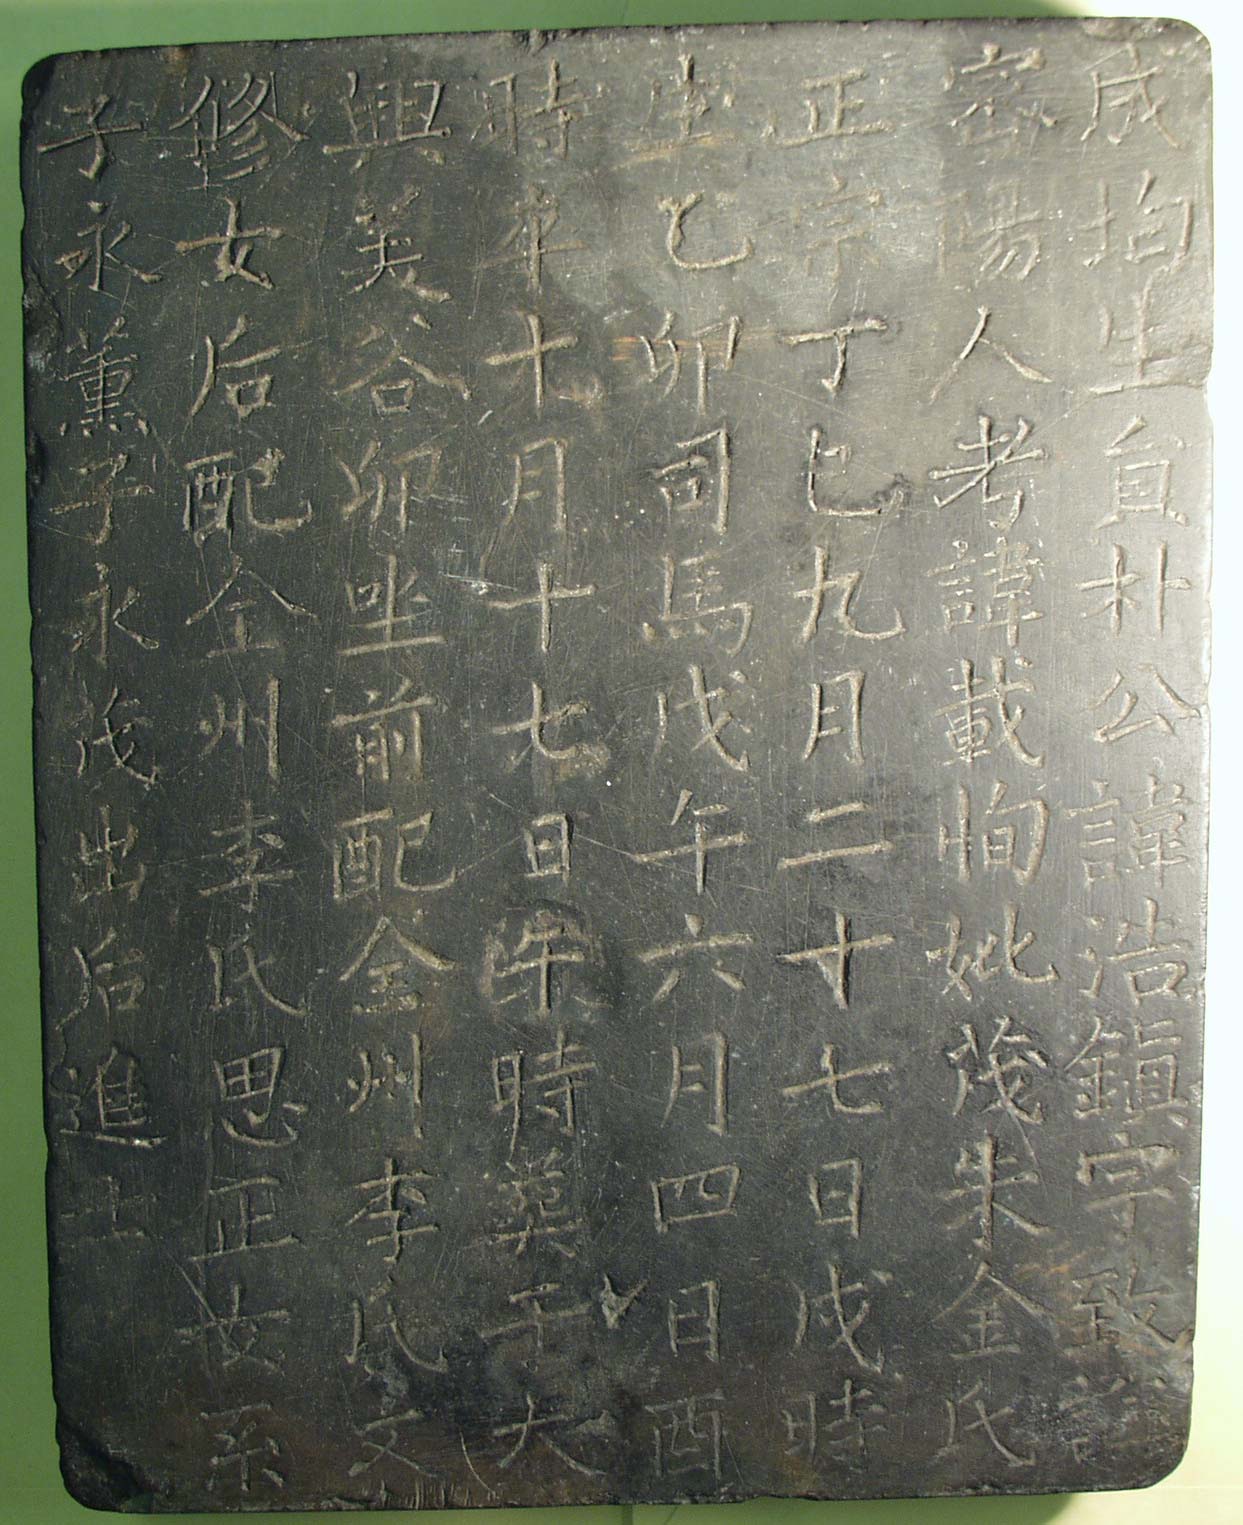 成均生貟朴公諱浩鎭字致
密陽人考諱載恂妣茂朱金氏
正宗丁巳九月二十七日戌時
生乙卯司馬戊午六月四日酉
時卒十月十七日午時葬于大
興美谷卯坐前配全州李氏文
修女后配全州李氏思正女系
子永薰子永茂出后進士